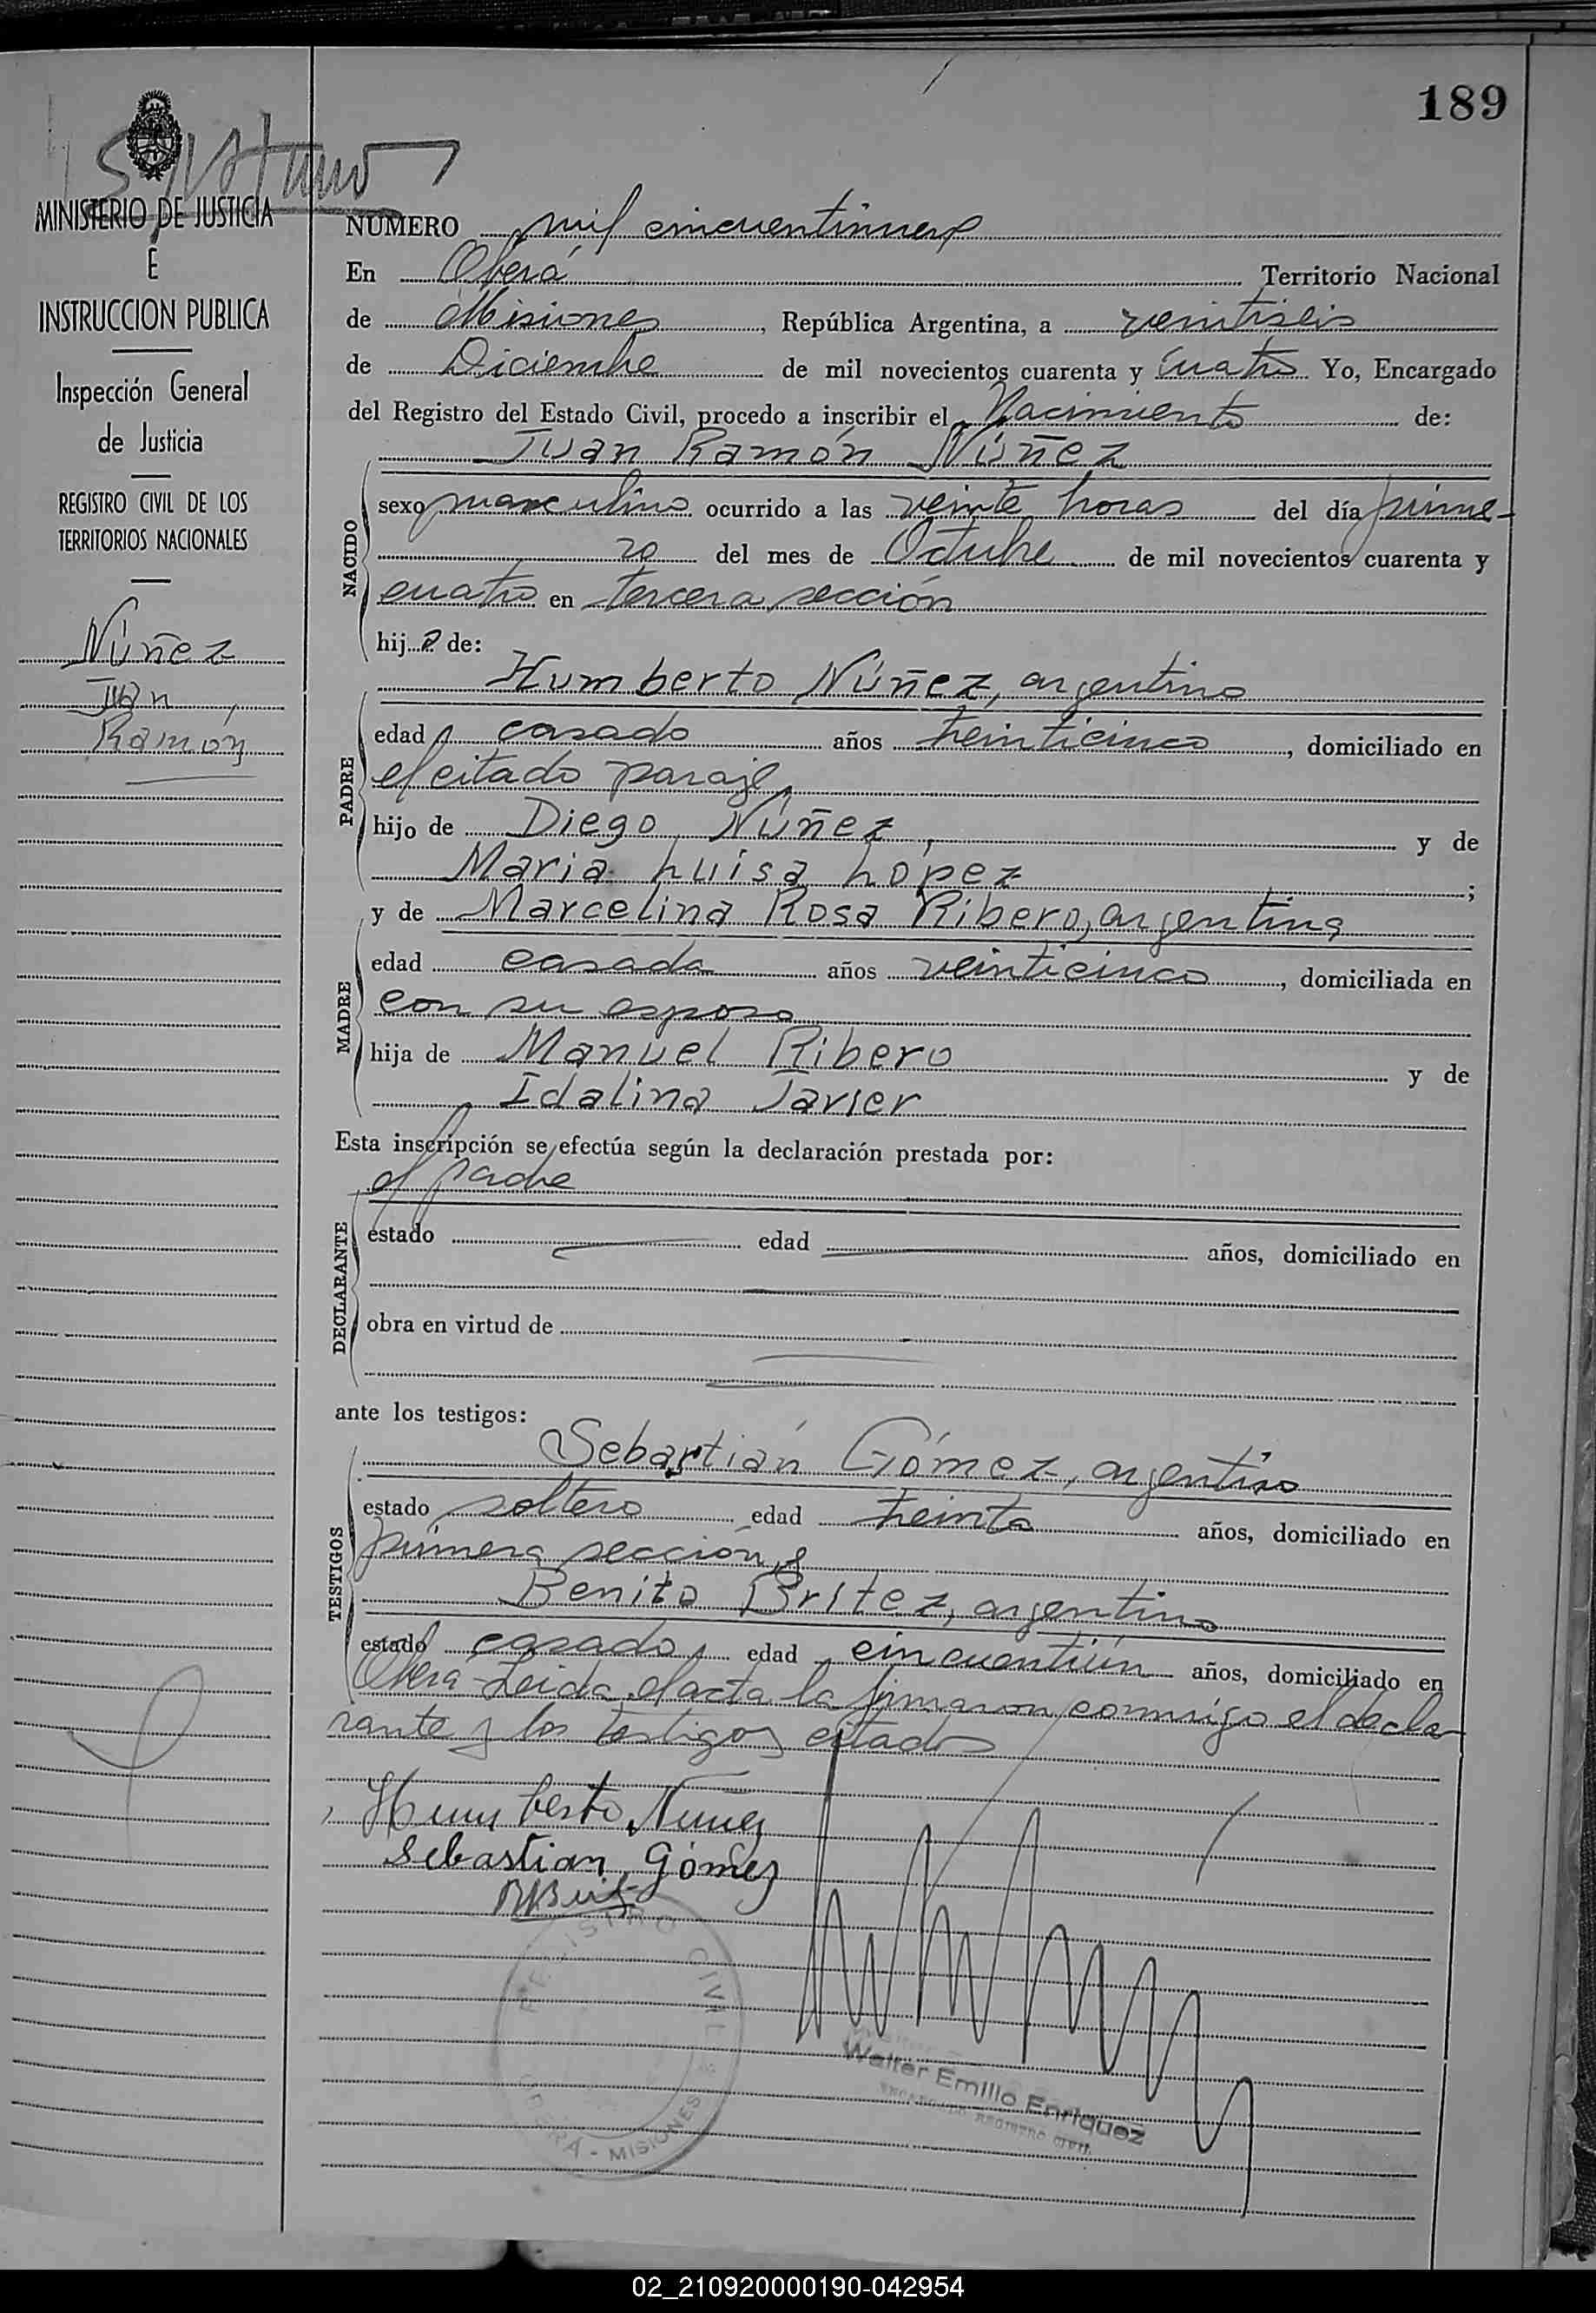 189
MINISTERIO DE JUSTICIA
E
INSTRUCCION PUBLICA
Inspección General
de Justicia
REGISTRO CIVIL DE LOS
TERRITORIOS NACIONALES
Núñez
Juan
Ramón
NUMERO mil cincuentinueve
En Oberá Territorio Nacional
de Misiones, República Argentina, a veintiseis
de Diciembre de mil novecientos cuarenta y cuatro Yo, Encargado
del Registro del Estado Civil, procedo a inscribir el Nacimiento de:
Juan Ramón Núñez
NACIDO
sexo masculino ocurrido a las veinte horas del día prime-
ro del mes de Octubre de mil novecientos cuarenta y
cuatro en tercera sección
hijo de:
Humberto Núñez, argentino
PADRE
edad casado años treinticinco, domiciliado en
el citado paraje
hijo de Diego Núñez, y de
Maria Luisa López;
y de Marcelina Rosa Ribero, argentina
MADRE
edad casada años veinticinco, domiciliada en
con su esposo
hija de Manuel Ribero y de
Idalina Javier
Esta inscripción se efectúa según la declaración prestada por:
el padre
DECLARANTE
estado edad años, domiciliado en
obra en virtud de
ante los testigos:
Sebastián Gómez, argentino
TESTIGOS
estado soltero edad treinta años, domiciliado en
primera sección y
Benito Britez, argentino
estado casado edad cincuentiún años, domiciliado en
Oberá Leida el acta la firmaron conmigo el decla-
rante y los testigos citados
Humberto Nuñez
Sebastian Gómez
REGISTRO CIVIL
OBERÁ - MISIONES
Walter Emilio Enriquez
ENCARGADO REGISTRO CIVIL
02_210920000190-042954